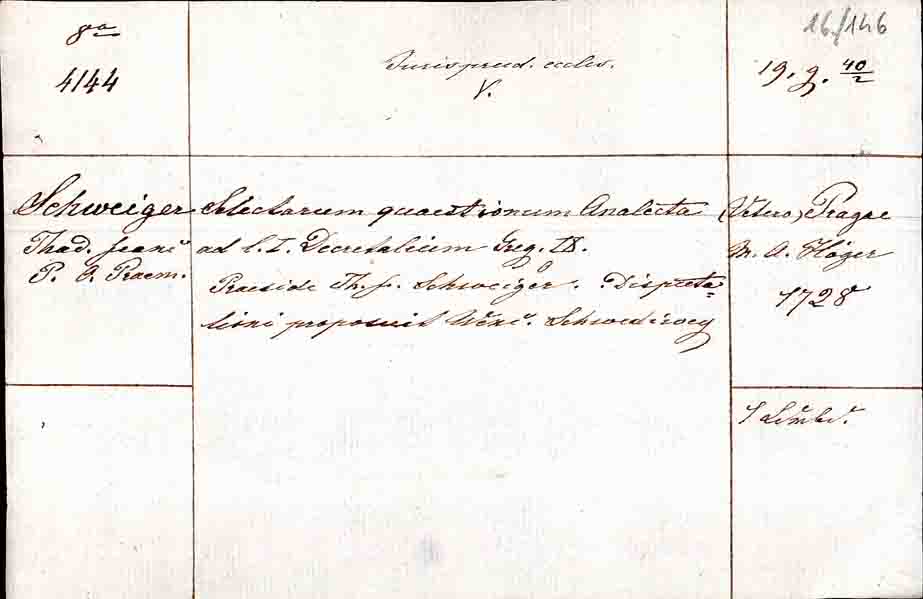 8o
4144
Jurisprud. eccles.
V.
16/146
19. g. 40/2
Schweiger
Thad.
P. O. Praem.
Selectarum quaestionum Analecta
ad l. I. Decretalium Greg. IX.
Praeside Th. J. Schweiger. Disputa=
tioni proposuit
(Vetero) Pragae
M. A. Höger
1728
1